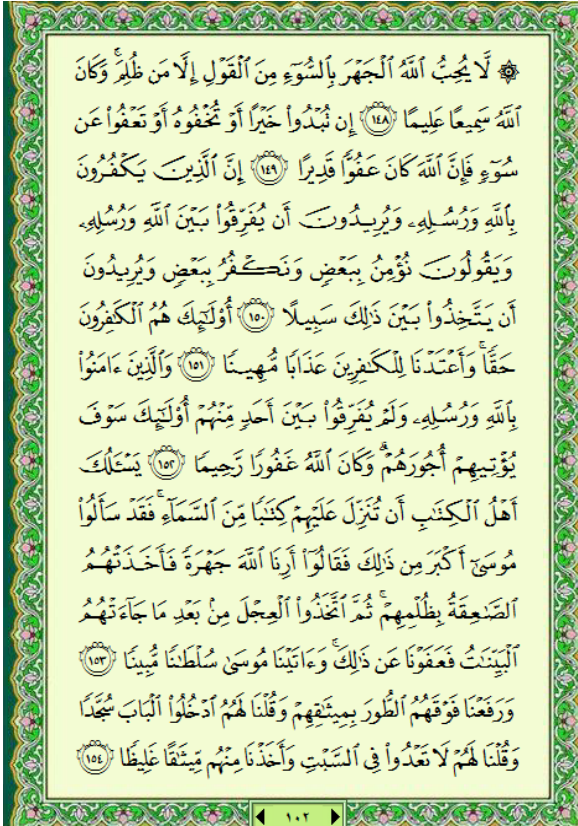 ۞ لَّا يُحِبُّ ٱللَّهُ ٱلْجَهْرَ بِٱلسُّوٓءِ مِنَ ٱلْقَوْلِ إِلَّا مَن ظُلِمَ ۚ وَكَانَ
ٱللَّهُ سَمِيعًا عَلِيمًا ١٤٨ إِن تُبْدُوا۟ خَيْرًا أَوْ تُخْفُوهُ أَوْ تَعْفُوا۟ عَن
سُوٓءٍ فَإِنَّ ٱللَّهَ كَانَ عَفُوًّا قَدِيرًا ١٤٩ إِنَّ ٱلَّذِينَ يَكْفُرُونَ
بِٱللَّهِ وَرُسُلِهِۦ وَيُرِيدُونَ أَن يُفَرِّقُوا۟ بَيْنَ ٱللَّهِ وَرُسُلِهِۦ
وَيَقُولُونَ نُؤْمِنُ بِبَعْضٍ وَنَكْفُرُ بِبَعْضٍ وَيُرِيدُونَ
أَن يَتَّخِذُوا۟ بَيْنَ ذَٰلِكَ سَبِيلًا ١٥٠ أُو۟لَٰٓئِكَ هُمُ ٱلْكَٰفِرُونَ
حَقًّا ۚ وَأَعْتَدْنَا لِلْكَٰفِرِينَ عَذَابًا مُّهِينًا ١٥١ وَٱلَّذِينَ ءَامَنُوا۟
بِٱللَّهِ وَرُسُلِهِۦ وَلَمْ يُفَرِّقُوا۟ بَيْنَ أَحَدٍ مِّنْهُمْ أُو۟لَٰٓئِكَ سَوْفَ
يُؤْتِيهِمْ أُجُورَهُمْ ۗ وَكَانَ ٱللَّهُ غَفُورًا رَّحِيمًا ١٥٢ يَسْـَٔلُكَ
أَهْلُ ٱلْكِتَٰبِ أَن تُنَزِّلَ عَلَيْهِمْ كِتَٰبًا مِّنَ ٱلسَّمَآءِ ۚ فَقَدْ سَأَلُوا۟
مُوسَىٰٓ أَكْبَرَ مِن ذَٰلِكَ فَقَالُوٓا۟ أَرِنَا ٱللَّهَ جَهْرَةً فَأَخَذَتْهُمُ
ٱلصَّٰعِقَةُ بِظُلْمِهِمْ ۚ ثُمَّ ٱتَّخَذُوا۟ ٱلْعِجْلَ مِنۢ بَعْدِ مَا جَآءَتْهُمُ
ٱلْبَيِّنَٰتُ فَعَفَوْنَا عَن ذَٰلِكَ ۚ وَءَاتَيْنَا مُوسَىٰ سُلْطَٰنًا مُّبِينًا ١٥٣
وَرَفَعْنَا فَوْقَهُمُ ٱلطُّورَ بِمِيثَٰقِهِمْ وَقُلْنَا لَهُمُ ٱدْخُلُوا۟ ٱلْبَابَ سُجَّدًا
وَقُلْنَا لَهُمْ لَا تَعْدُوا۟ فِى ٱلسَّبْتِ وَأَخَذْنَا مِنْهُم مِّيثَٰقًا غَلِيظًا ١٥٤
١٠٢